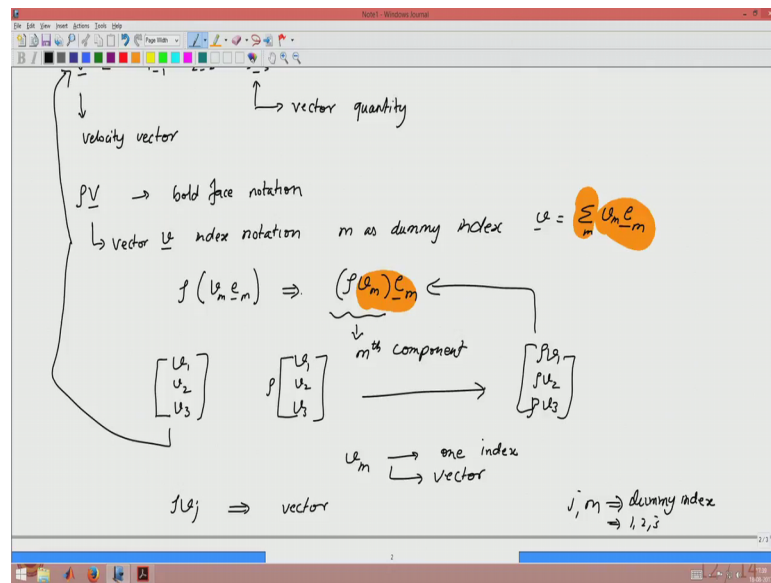 Note1 - Windows Journal
File Edit View Insert Actions Tools Help
Page Width
B I
→ vector quantity
velocity vector
ρV → bold face notation
↳ vector v index notation m as dummy index v = Σ_m v_m e_m
ρ(v_m e_m) ⇒ (ρ v_m) e_m
m^th component
[v_1 v_2 v_3] ρ[v_1 v_2 v_3] → [ρv_1 ρv_2 ρv_3]
v_m → one index
↳ vector
ρv_j ⇒ vector j, m ⇒ dummy index
⇒ 1, 2, 3
2
2/3